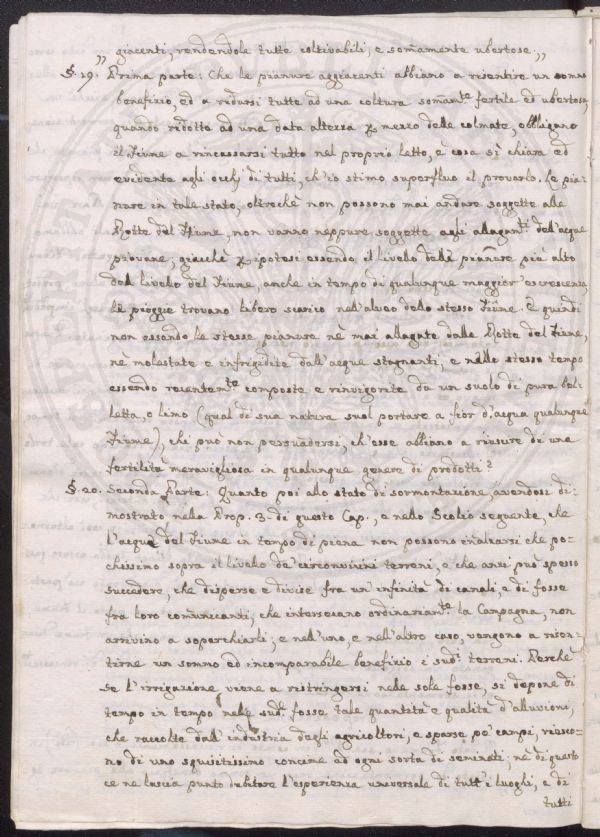 giacenti, rendendole tutte coltivabili, e som̃amente ubertose.,,
§. 19. Prima parte: Che le pianure aggiacenti abbiano a risentire un sommo
benefizio, ed a ridursi tutte ad una coltura som̃am.te fertile ed ubertosa,
quando ridotte ad una data altezza p mezzo delle colmate, obbligano
il Fiume a rincassarsi tutto nel proprio letto, è cosa sì chiara ed
evidente agli occhj di tutti, ch'io stimo superfluo il provarlo. Le pia-
nure in tale stato, oltrechè non possono mai andare soggette alle
Rotte del Fiume, non vanno neppure soggette agli allagam.ti dell'acque
piovane; giacchè p ipotesi essendo il livello delle pianure più alto
del livello del Fiume, anche in tempo di qualunque maggior escrescenza
le pioggie trovano libero scarico nell'alveo dello stesso Fiume. E quindi
non essendo le stesse pianure nè mai allagate dalle Rotte del Fiume,
nè molestate e infrigidite dall'acque stagnanti; e nello stesso tempo
essendo recentem.te composte e rinvigorite da un suolo di pura bel-
letta, o limo (qual di sua natura suol portare a fior d'acqua qualunque
Fiume), chi può non persuadersi, ch'esse abbiano a riuscire di una
fertilità meravigliosa in qualunque genere di prodotti?
§. 20. Seconda Parte: Quanto poi allo stato di sormontazione, avendosi di-
mostrato nella Prop. 3. di questo Cap., e nello Scolio seguente, che
l'acque del Fiume in tempo di piena non possono inalzarsi che po-
chissimo sopra il livello de' circonvicini terreni, e che anzi può spesso
succedere, che disperse e divise fra un'infinità di canali, e di fosse
fra loro com̃unicanti, che intersecano ordinariam.te la Campagna, non
arrivino a soperchiarli; e nell'uno, e nell'altro caso, vengono a risen-
tirne un sommo ed incomparabile benefizio i sud.i terreni. Perchè
se l'irrigazione viene a ristringersi nelle sole fosse, si depone di
tempo in tempo nelle sud.e fosse tale quantità e qualità d'alluvioni,
che raccolte dall'industria degli agricoltori, e sparse pe' campi, riesco-
no di uno squisitissimo concime ad ogni sorta di seminati; nè di questo
ce ne lascia punto dubitare l'esperienza universale di tutt'i luoghi, e di
tutti